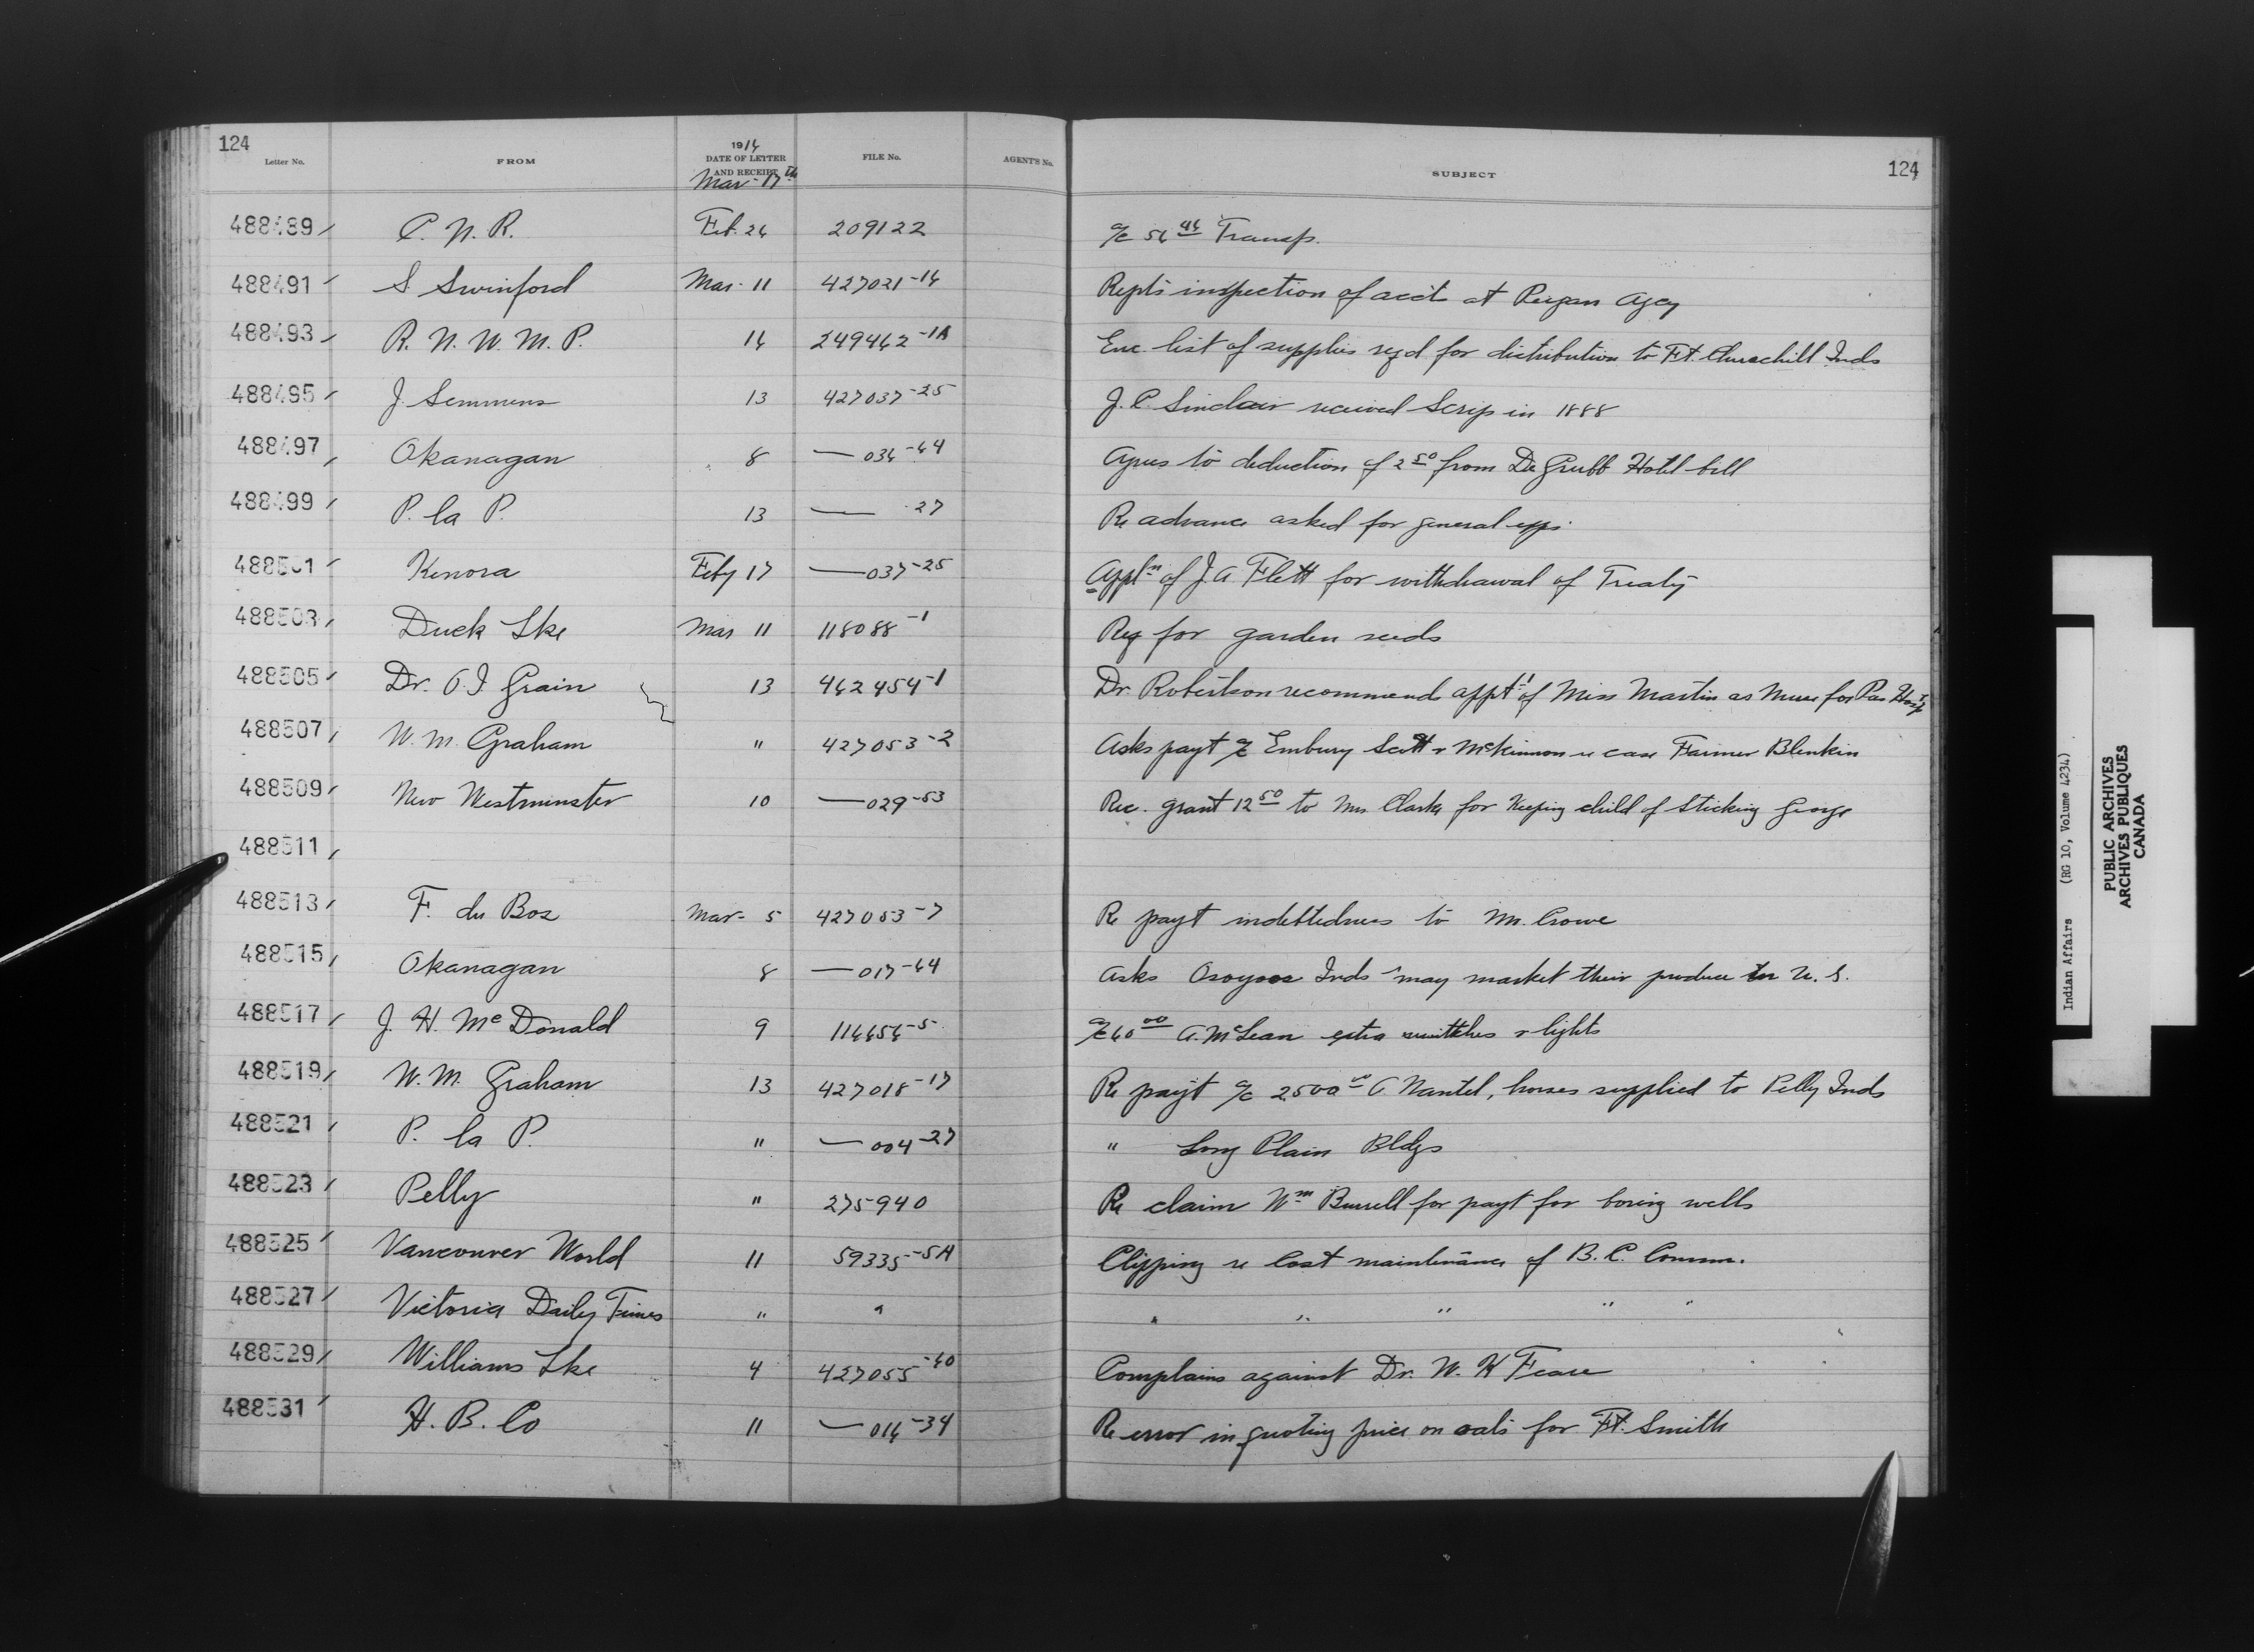 124
Letter No. FROM 1914 DATE OF LETTER AND RECEIPT FILE No. AGENT'S No. SUBJECT 124
Mar 17th
488489 C. N. R. Feb. 24 209122 a/c 54 44 Transp.
488491 S Swinford Mar. 11 427021-14 Repts inspection of acct at Peigan Agcy
488493 R. N. W. M. P. 14 249462-1A Enc. list of supplies reqd for distribution to Ft. Churchill Inds
488495 J. Semmens 13 427037-25 J. C. Sinclair received Scrip in 1888
488497 Okanagan 8 — 034-44 Agrees to deduction of 2 50 from De Grubb Hotel bill
488499 P. la P. 13 — 27 Re advance asked for general exps.
488501 Kenora Feby 17 — 037-25 Appln of J. A. Flett for withdrawal of Treaty
488503 Duck Lke Mar 11 118088-1 Req for garden seeds
488505 Dr. O. I. Grain 13 462454-1 Dr. Robertson recommends appt of Miss Martin as Nurse for Pas Hosp
488507 W. M. Graham " 427053-2 Asks payt a/c Embury Scott & McKinnon re case Farmer Blenkin
488509 New Westminster 10 — 029-53 Rec. grant 12 50 to Mrs Clark for keeping child of Sticking George
488511
488513 F. du Bos Mar- 5 427053-7 Re payt indebtedness to Mr. Crowe
488515 Okanagan 8 — 017-44 Asks Osoyoos Inds may market their produce in U. S.
488517 J. H. McDonald 9 114454-5 a/c 40 00 A. McLean extra switches & lights
488519 W. M. Graham 13 427018-17 Re payt a/c 2500 00 A Nantel, horses supplied to Pelly Inds
488521 P. la P. " — 004-27 " Long Plain Bldgs
488523 Pelly " 275940 Re claim Wm Burrell for payt for boring wells
488525 Vancouver World 11 59335-5A Clipping re Cost maintenance of B. C. Comm.
488527 Victoria Daily Times " " " " " " "
488529 Williams Lke 4 427055-40 Complains against Dr. W. H
488531 H. B. Co 11 — 014-34 Re error in quoting price on oats for Ft. Smith
Indian Affairs (RG 10, Volume 4234)
PUBLIC ARCHIVES
ARCHIVES PUBLIQUES
CANADA